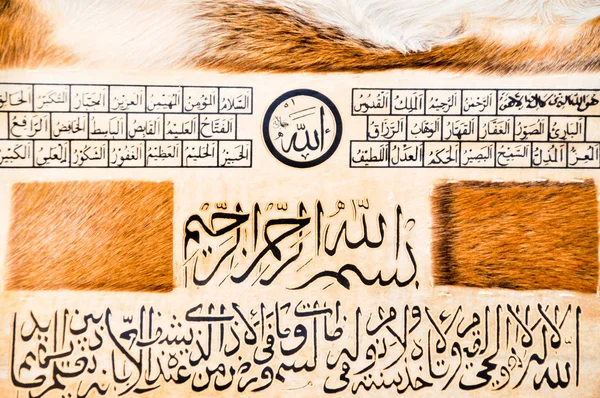 هو الله الذي لا إله إلا هو الرحمن الرحيم الملك القدوس السلام المؤمن المهيمن العزيز الجبار المتكبر
الله
البارئ المصور الغفار القهار الوهاب الرزاق الفتاح العليم القابض الباسط الخافض الرافع
المعز المذل السميع البصير الحكم العدل اللطيف الخبير الحليم العظيم الغفور الشكور العلي الكبير
بسم الله الرحمن الرحيم
الله لا إله إلا هو الحي القيوم لا تأخذه سنة ولا نوم له ما في السموات وما في الأرض من ذا الذي يشفع عنده إلا بإذنه يعلم ما بين أيديهم